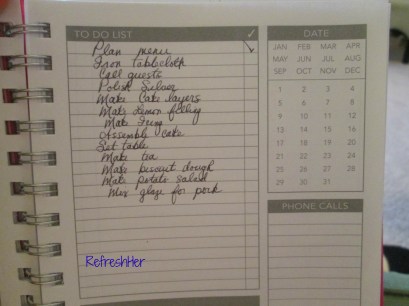 TO DO LIST ✓
Plan menu
Iron tablecloth
Call guests
Polish Silver
Make Cake layers
Make lemon filling
Make Icing
Assemble cake
Set table
Make tea
Make biscuit dough
Make potato salad
Mix glaze for pork
RefreshHer
DATE
JAN FEB MAR APR
MAY JUN JUL AUG
SEP OCT NOV DEC
1 2 3 4
5 6 7 8
9 10 11 12
13 14 15 16
17 18 19 20
21 22 23 24
25 26 27 28
29 30 31
PHONE CALLS